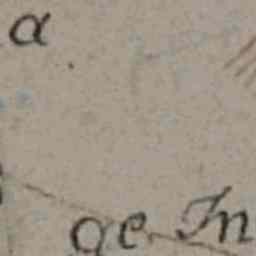 a
ge In